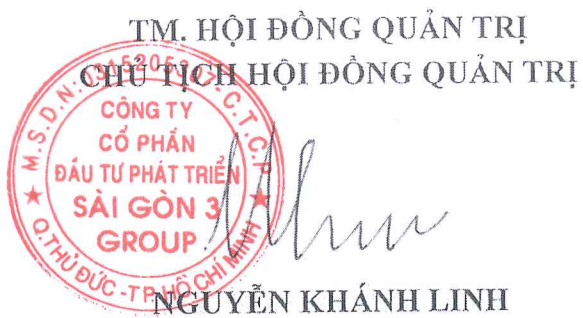 TM. HỘI ĐỒNG QUẢN TRỊ
CHỦ TỊCH HỘI ĐỒNG QUẢN TRỊ
C.T.C.P
CÔNG TY
CỔ PHẦN
ĐẦU TƯ PHÁT TRIỂN
SÀI GÒN 3
GROUP
Q.THỦ ĐỨC - TP HỒ CHÍ MINH
NGUYỄN KHÁNH LINH